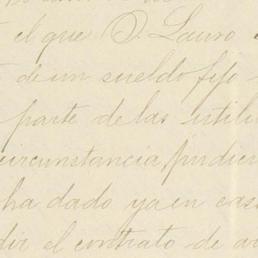 el que D. Lauro
de un sueldo fijo
parte de las utili
circunstancia, pudien
ha dado ya en cas
dir el contrato de